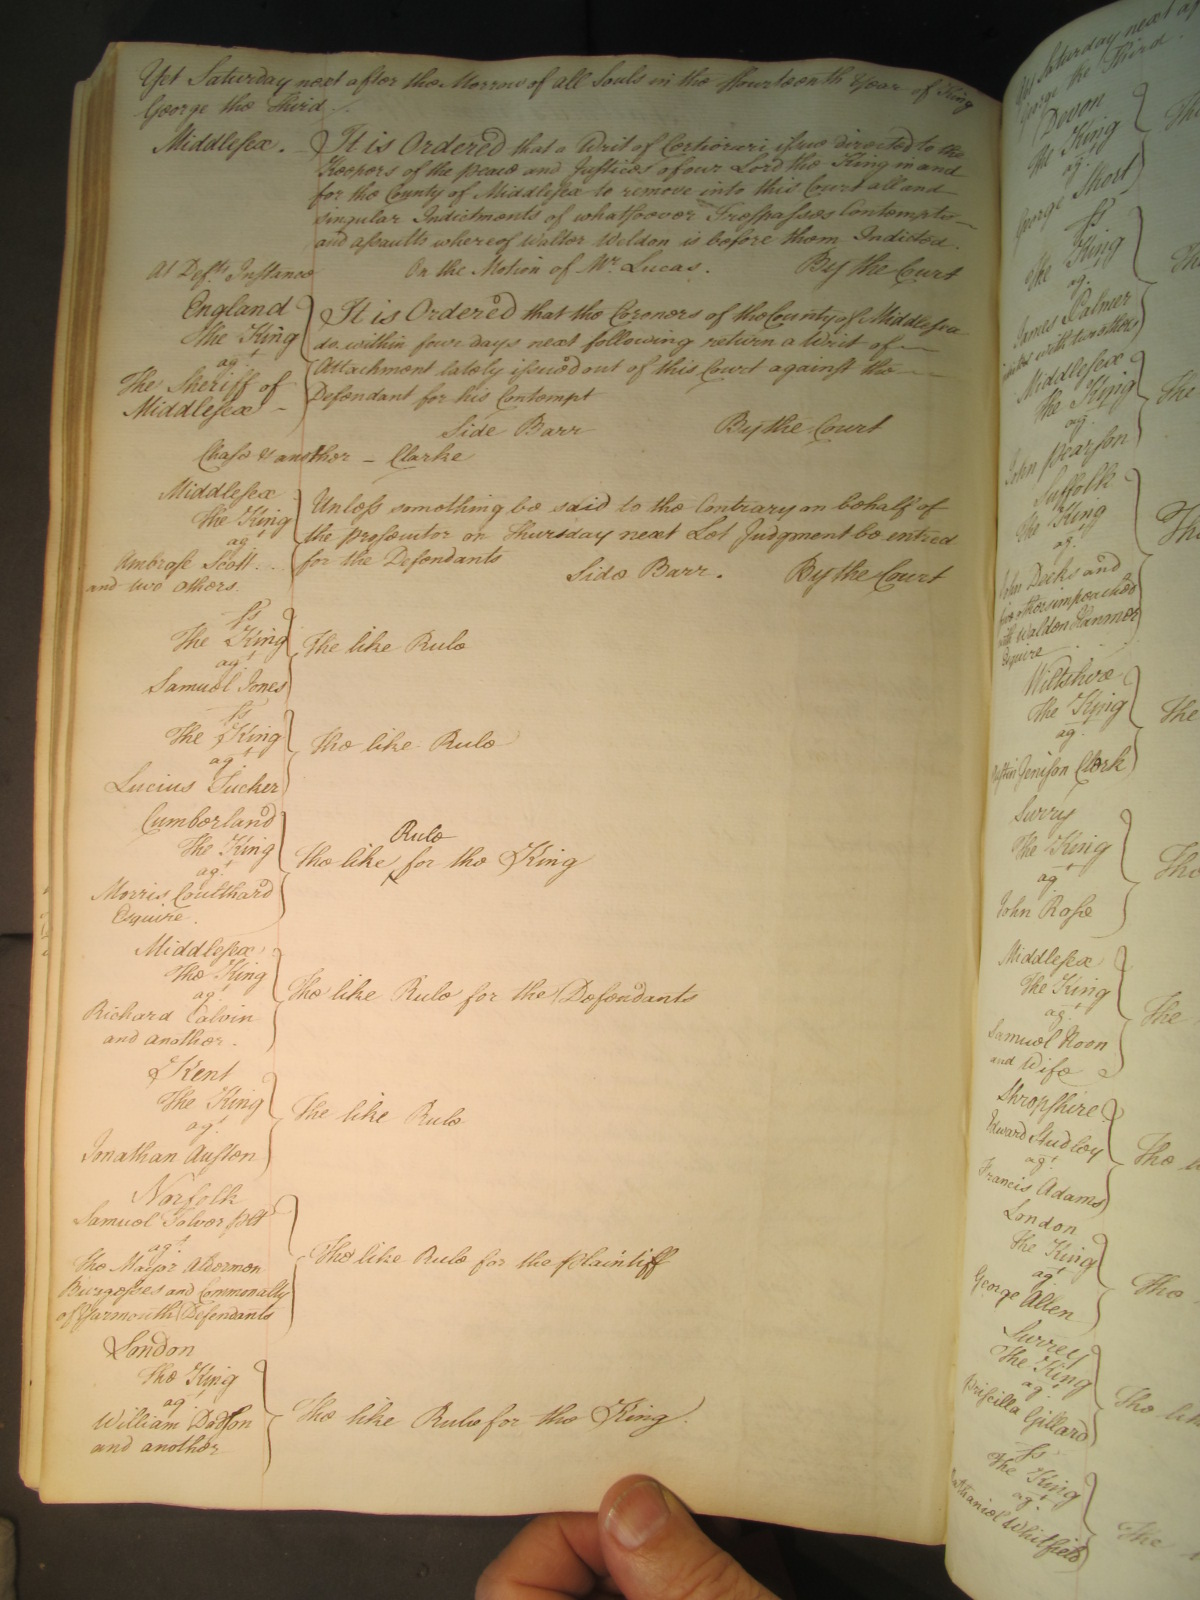 Yet Saturday next after the Morrow of all Souls in the Fourteenth Year of King
George the Third.
Middlesex. It is Ordered that a Writ of Certiorari issue directed to the
Keepers of the peace and Justices of our Lord the King in and
for the County of Middlesex to remove into this Court all and
singular Indictments of whatsoever Trespasses Contempts
and assaults whereof Walter Weldon is before them Indicted.
At Defts. Instance On the Motion of Mr. Lucas. By the Court
England
The King
agt.
The Sheriff of
Middlesex -
It is Ordered that the Coroners of the County of Middlesex
do within four days next following return a Writ of
Attachment lately issued out of this Court against the
Defendant for his Contempt
Side Barr By the Court
Chase & another - Clarke
Middlesex
The King
agt
Ambrose Scott
and two others.
Unless something be said to the Contrary on behalf of
the prosecutor on Thursday next Let Judgment be entred
for the Defendants
Side Barr. By the Court
Ss
The King
agt
Samuel Jones
The like Rule
Ss
The King
agt
Lucius Tucker
The like Rule
Cumberland
The King
agt.
Morris Coulthard
Esquire.
Rule
The like for the King
Middlesex
The King
agt.
Richard Calvin
and another.
The like Rule for the Defendants
Kent
The King
agt.
Jonathan Austen
The like Rule
Norfolk
Samuel Tolver plt
agt.
The Mayor Aldermen
Burgesses and Commonalty
of Yarmouth Defendants
The like Rule for the plaintiff
London
The King
agt
William Dodson
and another
The like Rule for the King.
Yet Saturday next
George the Third.
Devon
The King
agt.
George Short
Ss
The King
agt.
James Palmer
Middlesex
The King
agt.
John Pearson
The
Suffolk
The King
agt.
John Decks and
five others impeached
with Waldon Hanmer
Esquire
Wiltshire
The King
agt.
Jenison Clerk
The
Surry
The King
agt
John Rose
The
Middlesex
The King
agt.
Samuel Noon
and Wife
The
Shropshire
Edward Studley
agt.
Francis Adams
The
London
The King
agt
George Allen
The
Surrey
The King
agt.
Priscilla Gillard
The like
Ss
The King
agt.
Nathaniel Whitfield
The